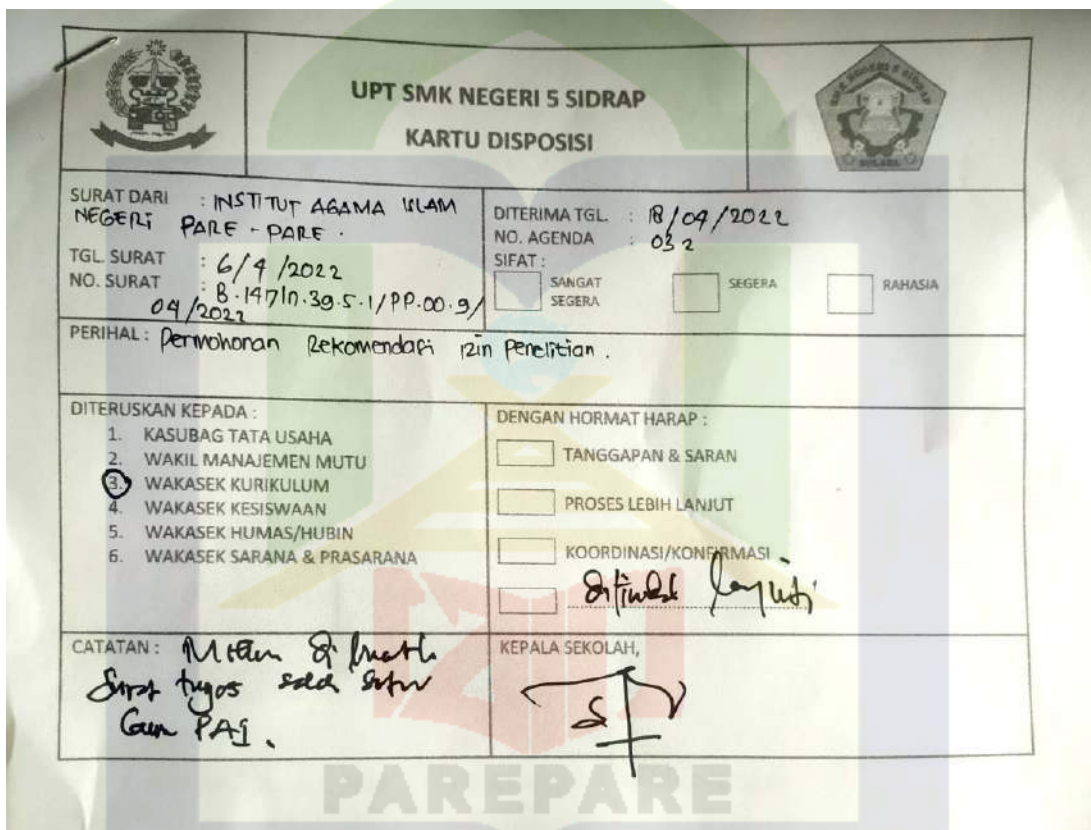 UPT SMK NEGERI 5 SIDRAP
KARTU DISPOSISI
SURAT DARI : INSTITUT AGAMA ISLAM
NEGERI PARE - PARE .
TGL. SURAT : 6/4/2022
NO. SURAT : B.147/In.39.5.1/PP.00.9/
04/2022
DITERIMA TGL. : 18/04/2022
NO. AGENDA : 032
SIFAT :
SANGAT
SEGERA
SEGERA
RAHASIA
PERIHAL : Permohonan Rekomendasi izin Penelitian .
DITERUSKAN KEPADA :
1. KASUBAG TATA USAHA
2. WAKIL MANAJEMEN MUTU
3. WAKASEK KURIKULUM
4. WAKASEK KESISWAAN
5. WAKASEK HUMAS/HUBIN
6. WAKASEK SARANA & PRASARANA
DENGAN HORMAT HARAP :
TANGGAPAN & SARAN
PROSES LEBIH LANJUT
KOORDINASI/KONFIRMASI
CATATAN :
Surat tugas salah satu
Guru PAI .
KEPALA SEKOLAH,
PAREPARE